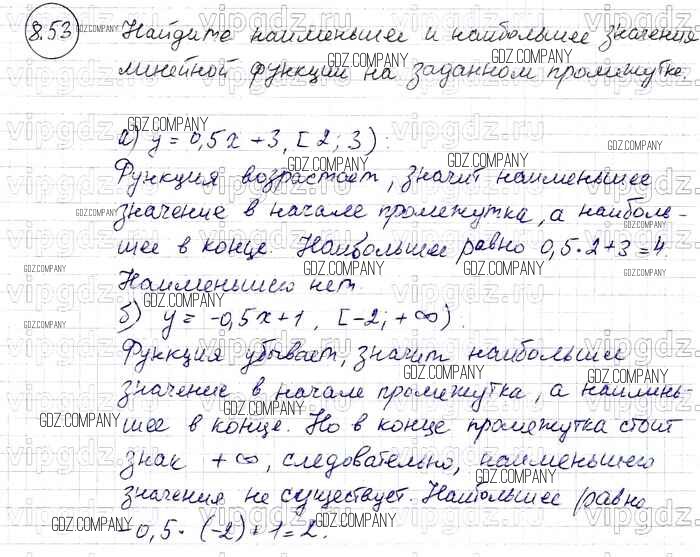 8.53 Найдите наименьшее и наибольшее значения
линейной функции на заданном промежутке.
а) y = 0,5x + 3, [2; 3):
Функция возрастает, значит наименьшее
значение в начале промежутка, а наиболь-
шее в конце. Наибольшее равно 0,5·2+3=4.
Наименьшего нет.
б) y = -0,5x+1, [-2; +∞).
Функция убывает, значит наибольшее
значение в начале промежутка, а наимень-
шее в конце. Но в конце промежутка стоит
знак +∞, следовательно, наименьшего
значения не существует. Наибольшее равно
-0,5·(-2)+1=2.